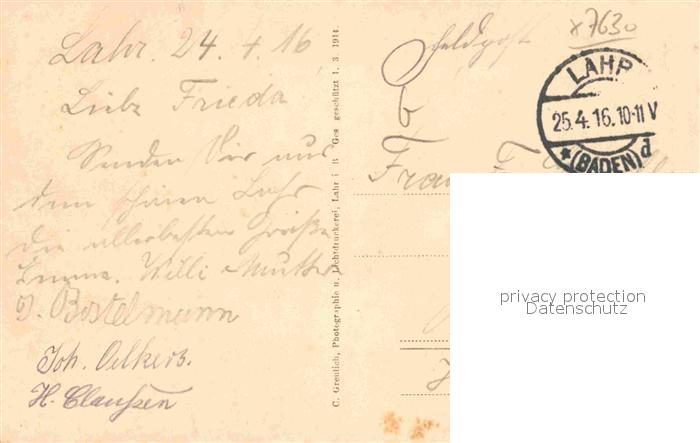 Lahr. 24. 4. 16
Liebe Frieda
Senden Dir aus
dem schönen Lahr
die allerbesten Grüße
Emma. Willi Mutter
J. Bostelmann
Joh. Oelkers.
H. Claussen
C. Greulich, Photographie u. Lichtdruckerei, Lahr i. B. Ges. geschützt 1. 3. 1914.
Feldpost
x7630
LAHR
25.4.16.10-11 V
*(BADEN) d
Frau
privacy protection
Datenschutz